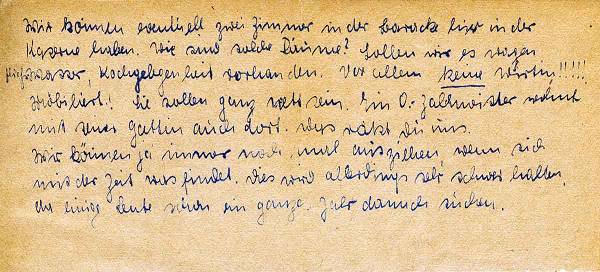 Wir können eventuell zwei Zimmer in der Baracke hier in der
Kaserne haben. Wie sind solche Räume? Sollen wir es wagen
Fließwasser, Kochgelegenheit vorhanden. Vor allem keine Wirtin!!!!!
Möbiliert! Sie sollen ganz nett sein. Ein O.-Zahlmeister wohnt
mit seiner Gattin auch dort. Was rätst Du uns.
Wir können ja immer noch mal ausziehen, wenn sich
mit der Zeit was findet. Dies wird allerdings sehr schwer halten,
da einige Leute schon ein ganzes Jahr danach suchen.